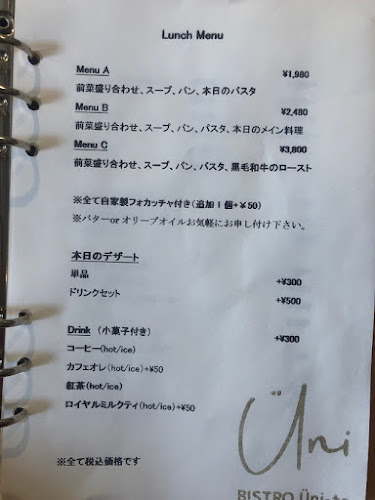 Lunch Menu
Menu A ¥1,980
前菜盛り合わせ、スープ、パン、本日のパスタ
Menu B ¥2,480
前菜盛り合わせ、スープ、パン、パスタ、本日のメイン料理
Menu C ¥3,800
前菜盛り合わせ、スープ、パン、パスタ、黒毛和牛のロースト
※全て自家製フォカッチャ付き（追加1個+¥50）
※バターorオリーブオイルお気軽にお申し付け下さい。
本日のデザート
単品 +¥300
ドリンクセット +¥500
Drink （小菓子付き） +¥300
コーヒー(hot/ice)
カフェオレ(hot/ice)+¥50
紅茶(hot/ice)
ロイヤルミルクティ(hot/ice)+¥50
※全て税込価格です
Üni
BISTRO